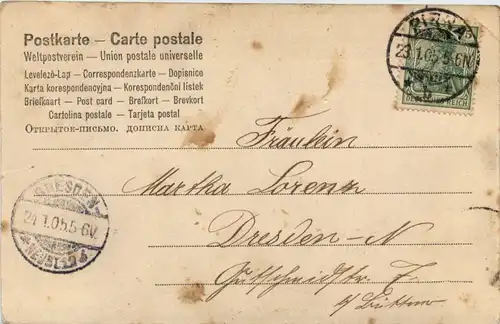 Postkarte — Carte postale
Weltpostverein — Union postale universelle
Levelező-Lap — Correspondenzkarte — Dopisnice
Karta korespondencyjna — Korespondenční listek
Briefkaart — Post card — Brefkort — Brevkort
Cartolina postale — Tarjeta postal
Открытое-письмо. дописна карта
PIRNA
23.1.05.5-6N.
b
REICH
Fräulein
Martha Lorenz
Dresden-N
DRESDEN
24.1.05.5-6V.
NEUST.
Gutschmidstr. 7.
b/ Büttner